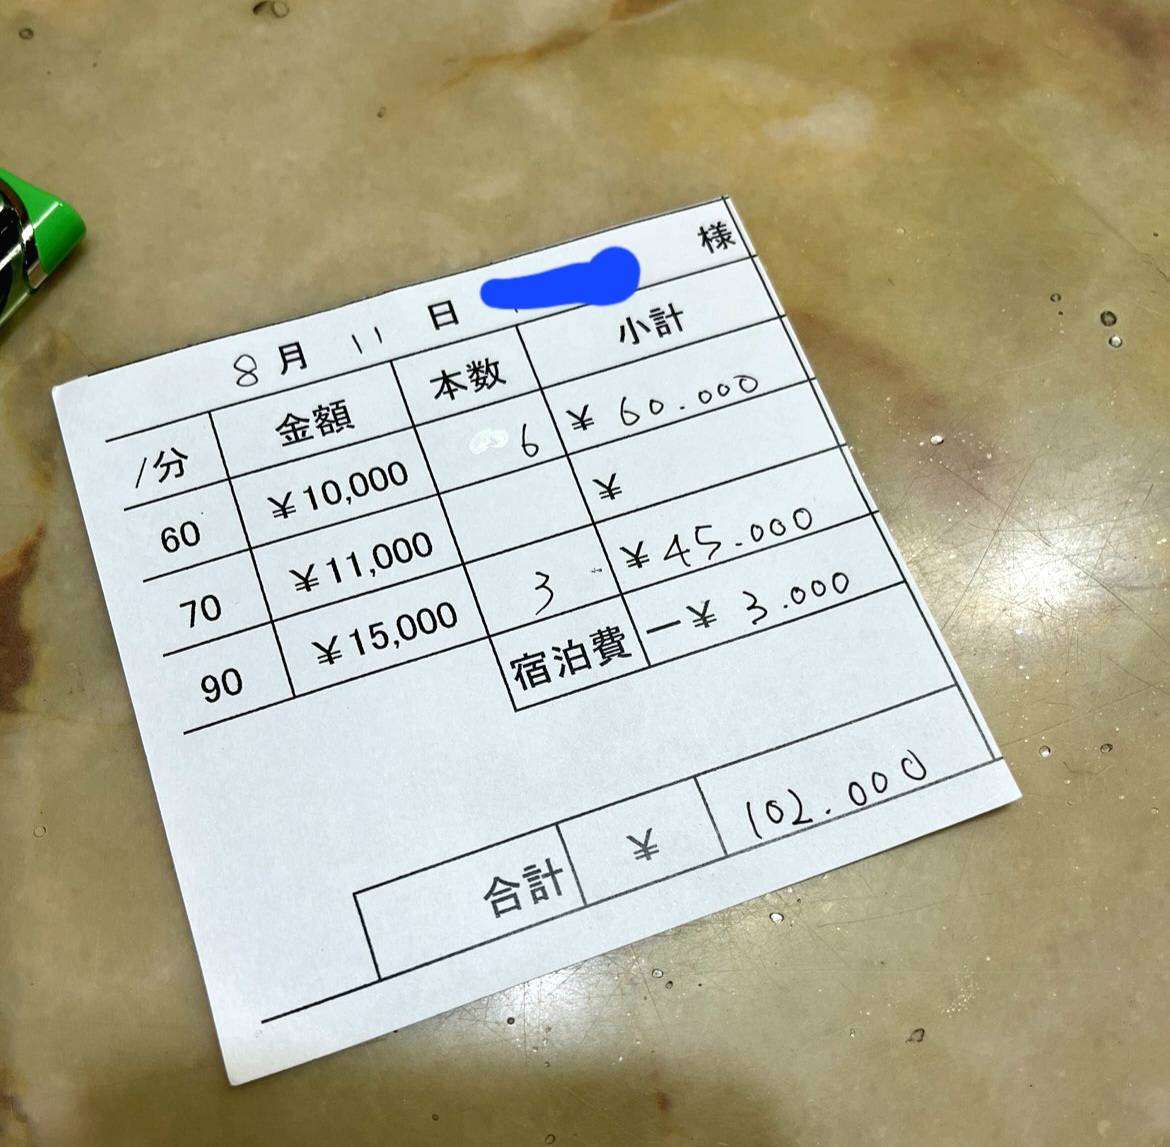 8月 11 日 様
/分 金額 本数 小計
60 ¥10,000 6 ¥ 60.000
70 ¥11,000 ¥
90 ¥15,000 3 ¥ 45.000
宿泊費 ー¥ 3.000
合計 ¥ 102.000